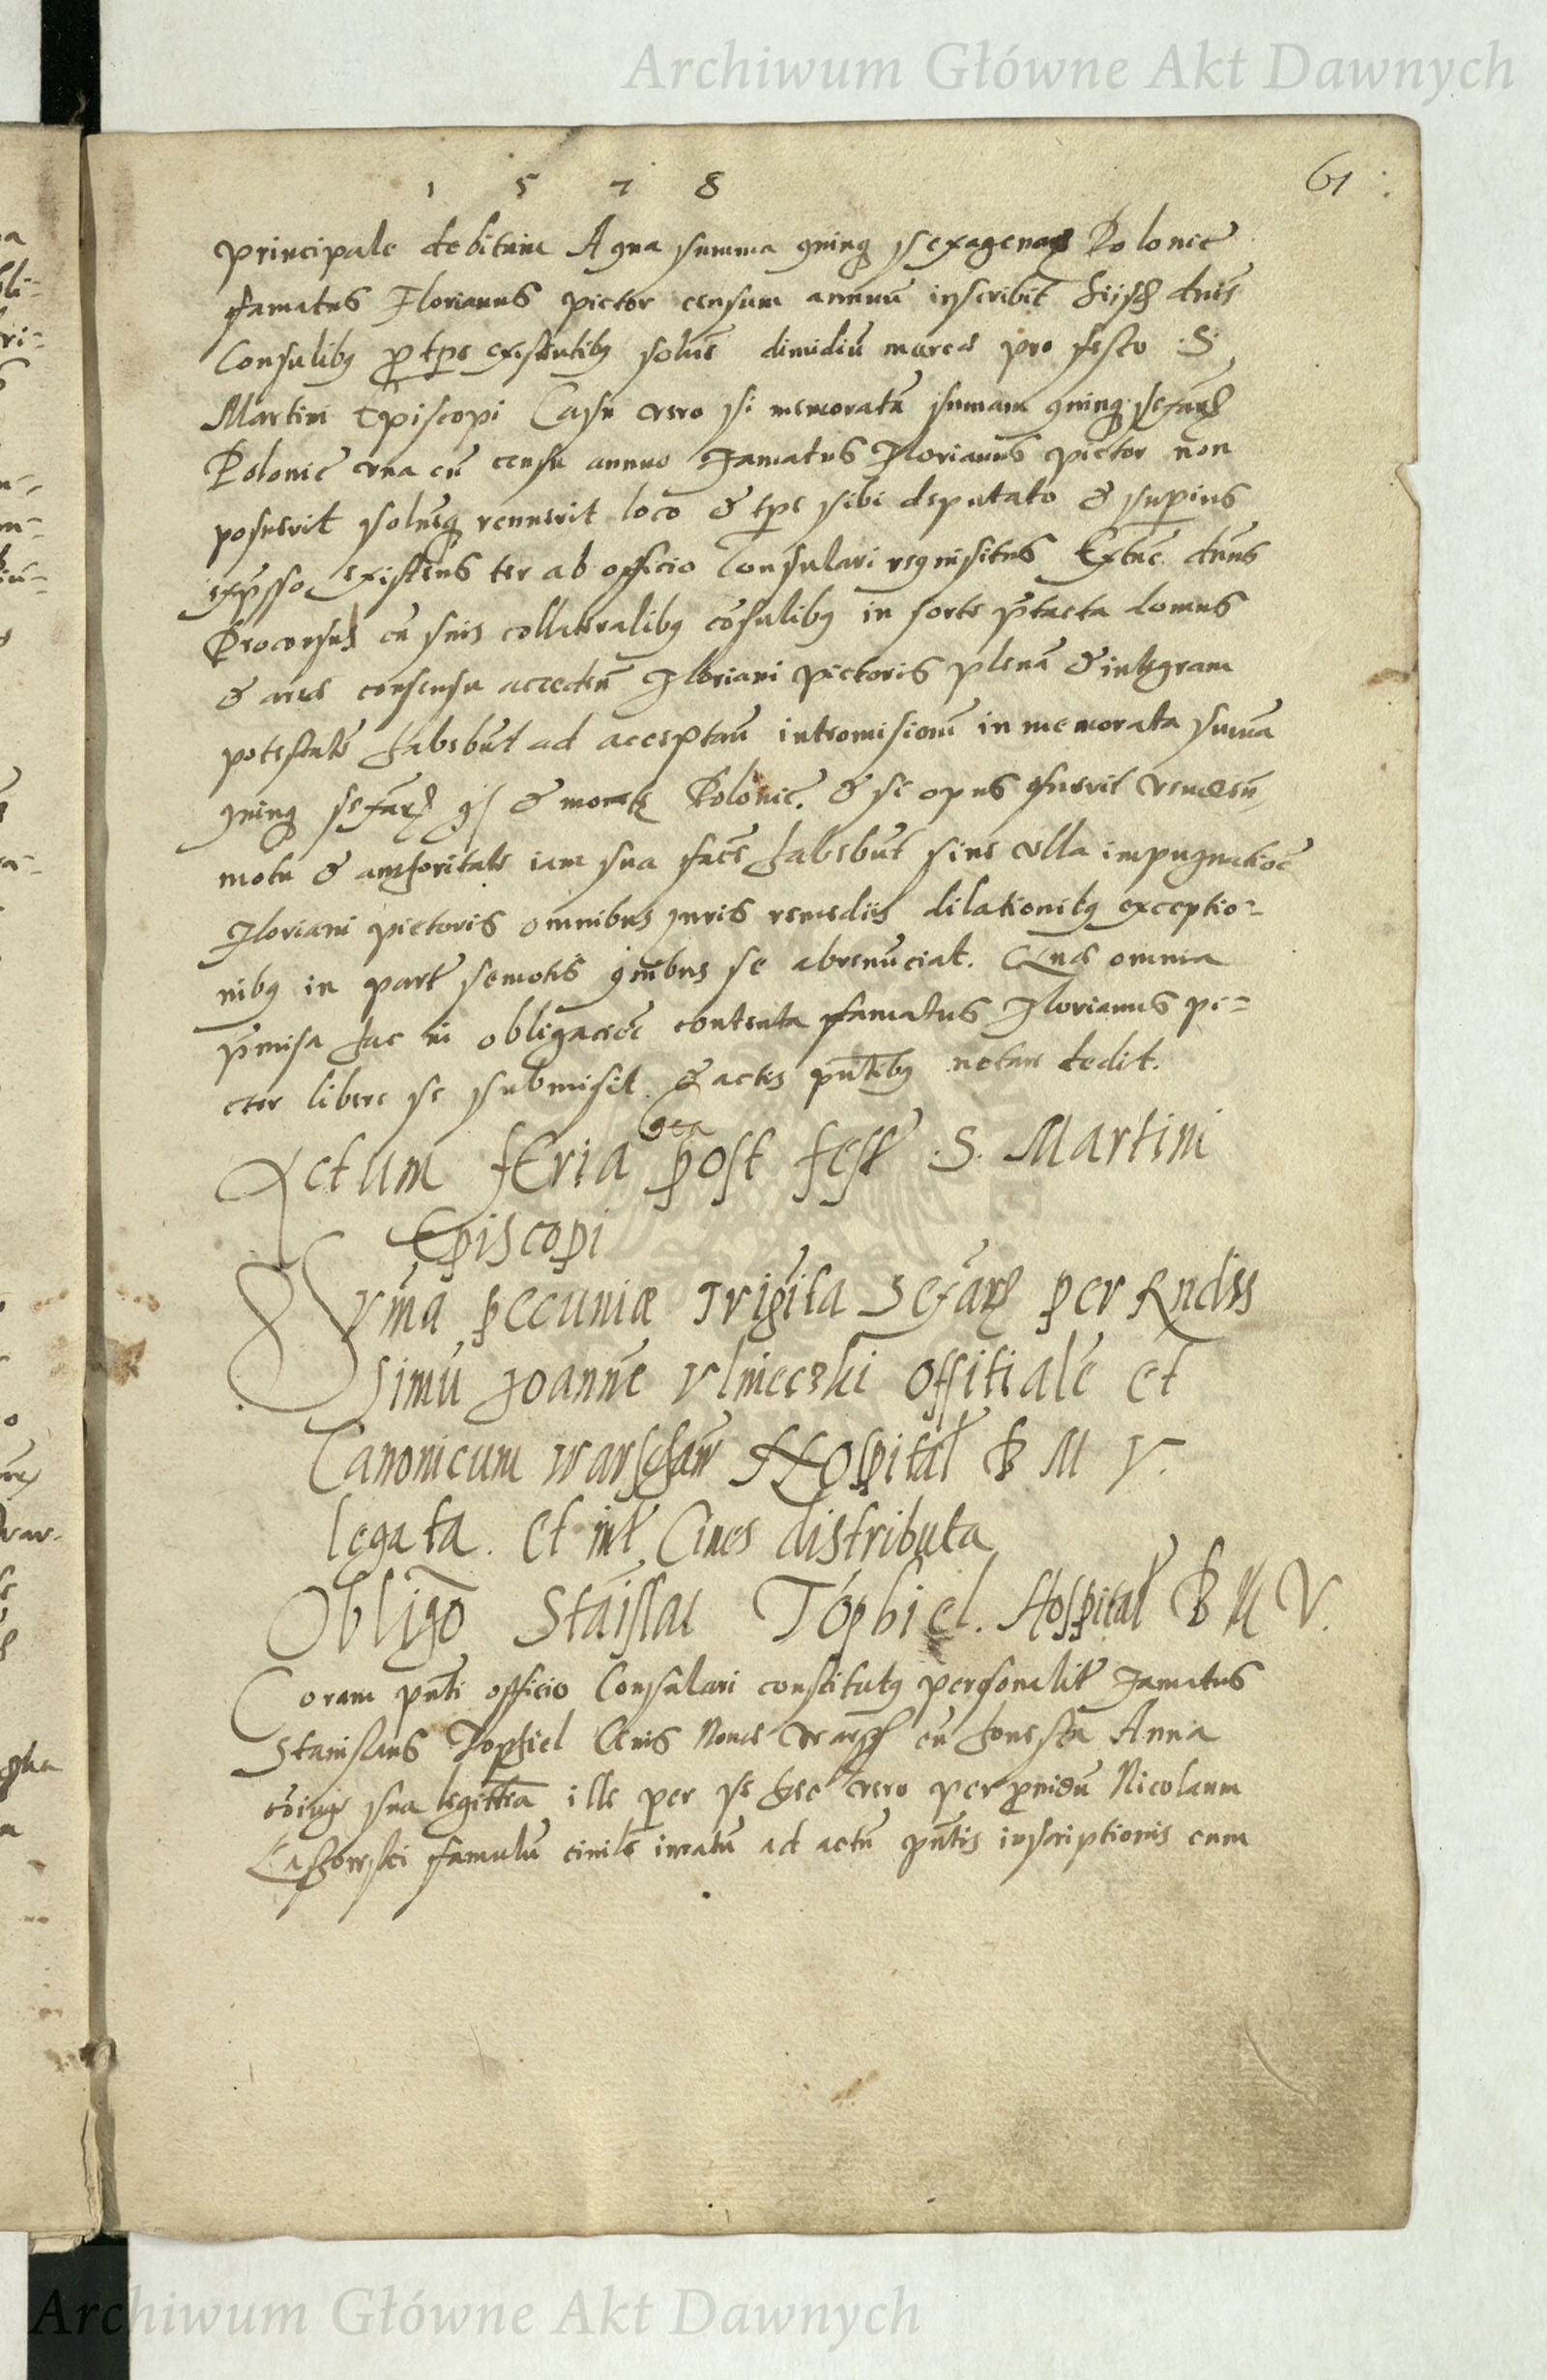 Archiwum Główne Akt Dawnych
1 5 7 8
61
principale debitum A qua summa quinq sexagenas Polonic
famatus Florianus pictor censum annuū inscribit hiisdē dnis
Consulibȝ p tpe existentibȝ soluē dimidiū marcā pro festo S.
Martini Episcopi Casu vero si memoratā sumam quinq sexarȝ
Polonic vna cū censu annuo Famatus Florianus pictor non
posuerit soluēq renuerit loco & tpe sibi deputato & superius
exp̄sso existens ter ab officio Consulari requisitus Extūc dnūs
Proconsul cū suis collateralibȝ cōsulibȝ in forte p̄tacta domus
& area consensu accedēn Floriani pictoris plenā & integram
potestatē habebūt ad acceptan̄ intromisionē in memorata sum̄a
quinq sexarȝ & Polonic. & si opus fuerit
motu & authoritate iam sua facē habebūt sine vlla impugnatioē
Floriani pictoris omnibus iuris remediis dilationibȝ exceptio-
nibȝ in partē semotis quibus se abrenūciat. Quae omnia
p̄misa hac in obligacioē contenta famatus Florianus pi-
ctor libere se submisit & actis pn̄tibȝ notare dedit.
Actum fEria post fest S. Martini
Episcopi
Sum̄a pecuniæ Trigīta Sexarȝ per Rndiss
simū Joannē Vlnieczki offitialē et
Canonicum warschaw̄ HOspital B M V.
legata. Et int Ciues distributa
Obligō Stāislai Tophiel. Hospital B M V.
Coram pn̄ti officio Consulari constitutȝ personalit Famatus
Stanislaus Tophiel Ciuis Noua Warsch cū honesta Anna
cōiuge sua legittīa ille per se hec vero per Nicolaum
famulū ciuilē iuratū ad actū pn̄tis inscriptionis cum
Archiwum Główne Akt Dawnych